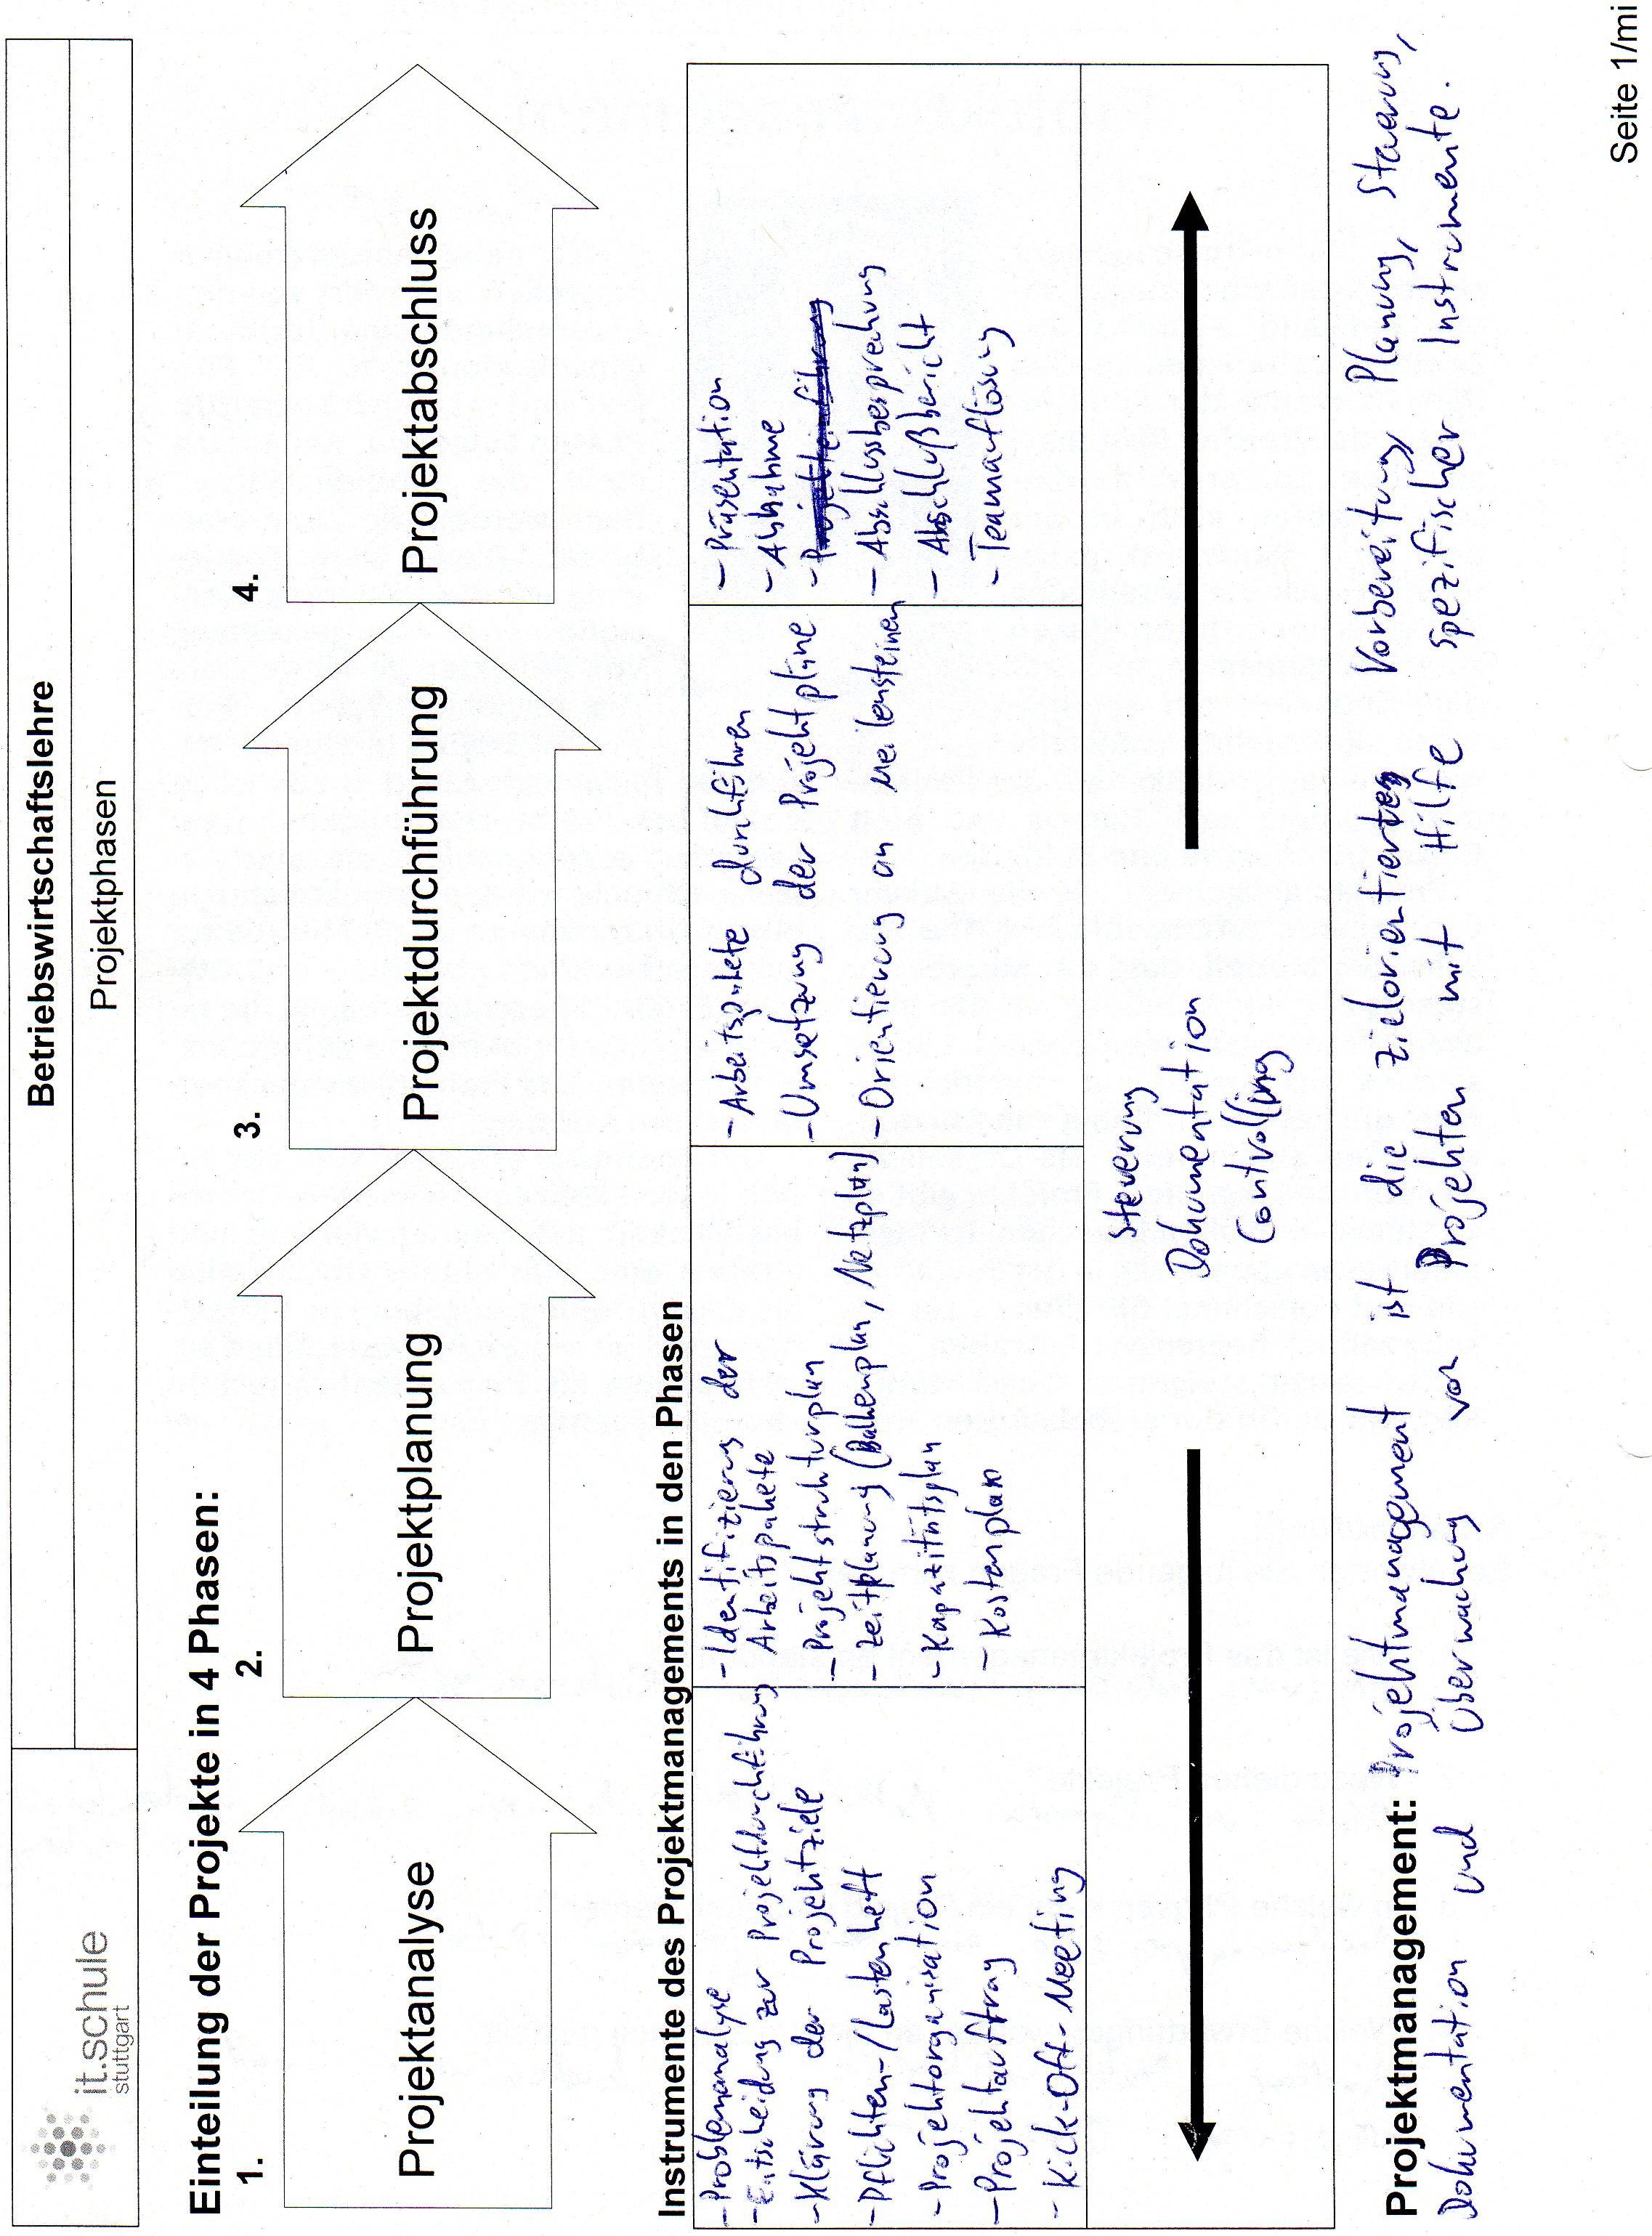 it.schule
stuttgart
Betriebswirtschaftslehre
Projektphasen
Einteilung der Projekte in 4 Phasen:
1.
2.
3.
4.
Projektanalyse
Projektplanung
Projektdurchführung
Projektabschluss
Instrumente des Projektmanagements in den Phasen
- Problemanalyse
- Entscheidung zur Projektdurchführung
- Klärung der Projektziele
- Pflichten-/Lastenheft
- Projektorganisation
- Projektauftrag
- Kick-Off-Meeting
- Identifizierung der
Arbeitspakete
- Projektstrukturplan
- Zeitplanung (Balkenplan, Netzplan)
- Kapazitätsplan
- Kostenplan
- Arbeitspakete durchführen
- Umsetzung der Projektpläne
- Orientierung an Meilensteinen
- Präsentation
- Abnahme
- Abschlussbesprechung
- Abschlußbericht
- Teamauflösung
Steuerung
Dokumentation
Controlling
Projektmanagement: Projektmanagement ist die zielorientierte Vorbereitung, Planung, Steuerung,
Dokumentation und Überwachung von Projekten mit Hilfe spezifischer Instrumente.
Seite 1/mi